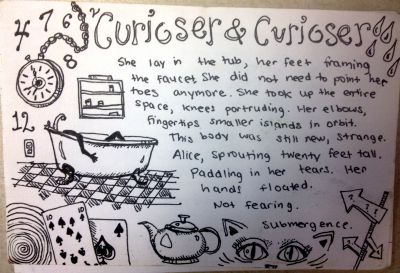 4 7 6 8
12
"Curioser & Curioser
She lay in the tub, her feet framing
the faucet. She did not need to point her
toes anymore. She took up the entire
space, knees portruding. Her elbows,
fingertips smaller islands in orbit.
This body was still new, strange.
Alice, sprouting twenty feet tall.
Paddling in her tears. Her
hands floated.
Not fearing.
Submergence.